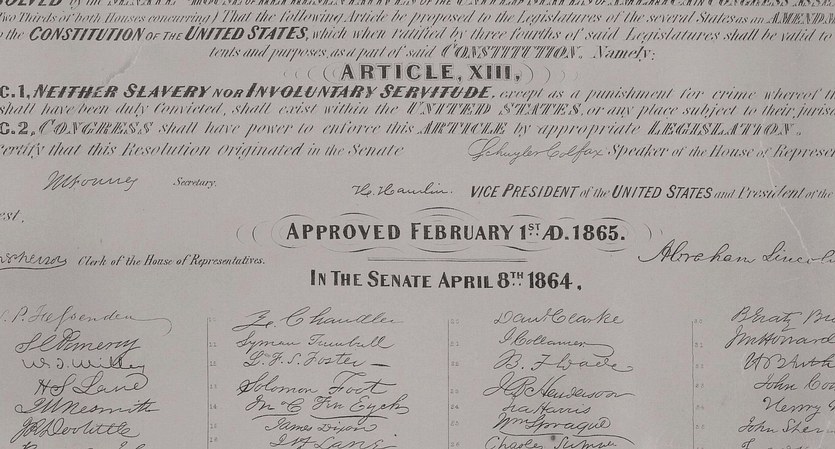 SOLVED by the SENATE and HOUSE of REPRESENTATIVES of the UNITED STATES of AMERICA in CONGRESS ASSE
Two Thirds of both Houses concurring) That the following Article be proposed to the Legislatures of the several States as an AMEND
to the CONSTITUTION OF THE UNITED STATES, which when ratified by three fourths of said Legislatures shall be valid to
tents and purposes, as a part of said CONSTITUTION. Namely:
ARTICLE, XIII,
C.1, NEITHER SLAVERY NOR INVOLUNTARY SERVITUDE, except as a punishment for crime whereof th
shall have been duly Convicted, shall exist within the UNITED STATES, or any place subject to their juris
C.2, CONGRESS shall have power to enforce this ARTICLE by appropriate LEGISLATION.
Certify that this Resolution Originated in the Senate
Schuyler Colfax Speaker of the House of Represen
Secretary.
H. Hamlin. VICE PRESIDENT of the UNITED STATES and President of the
est.
APPROVED FEBRUARY 1ST AD. 1865.
Clerk of the House of Representatives.
Abraham Lincol
IN THE SENATE APRIL 8TH 1864.
P. Fessenden
Z. Chandler
Dan Clarke
S.C. Pomeroy
Lyman Trumbull
J Collamer
J M Howard
W. T. Willey
L. F. S. Foster
B. F Wade
H S Lane
Solomon Foot
J B Henderson
John Co
J W Nesmith
Jn C Ten Eyck
Ira Harris
Henry
J R Doolittle
James Dixon
Wm Sprague
John Sher
J H Lane
Charles Sumner